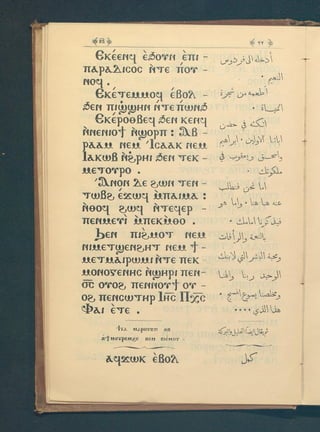 ٢٢
Ⲉⲕⲉ́ⲉⲛϥ ⲉ̀ϧⲟⲩⲛ ⲉ̀ⲡⲓ -
ⲡⲁⲣⲁⲇⲓⲥⲟⲥ ⲛ̀ⲧⲉ ⲡⲟⲩ -
ⲛⲟϥ .
Ⲉⲕⲉ́ⲧⲉⲙⲙⲟϥ ⲉ̀ⲃⲟⲗ -
ϧⲉⲛ ⲡⲓϣ̀ϣⲏⲛ ⲛ̀ⲧⲉ ⲡⲱⲛϧ
Ⲉⲕⲉ́ⲣⲟⲑⲃⲉϥ ϧⲉⲛ ⲕⲉⲛϥ
ⲛ̀ⲛⲉⲛⲓⲟϯ ⲛ̀ϣⲟⲣⲡ : Ⲁ̀ⲃ -
ⲣⲁⲁⲙ ⲛⲉⲙ Ⲓ̀ⲥⲁⲁⲕ ⲛⲉⲙ
Ⲓⲁⲕⲱⲃ ⲛ̀ϩ̀ⲣⲏⲓ ϧⲉⲛ ⲧⲉⲕ -
ⲙⲉⲧⲟⲩⲣⲟ .
Ⲁ̀ⲛⲟⲛ ⲇⲉ ϩⲱⲛ ⲧⲉⲛ -
ⲧⲱⲃϩ ⲉ̀ϫⲱϥ ⲙ̀ⲡⲁⲓⲙⲁ :
ⲛ̀ⲑⲟϥ ϩⲱϥ ⲛ̀ⲧⲉϥⲉⲣ -
ⲡⲉⲛⲙⲉⲩⲓ̀ ⲙ̀ⲡⲉⲕⲙ̀ⲑⲟ .
Ϧⲉⲛ ⲡⲓϩ̀ⲙⲟⲧ ⲛⲉⲙ
ⲛⲓⲙⲉⲧϣⲉⲛϩⲏⲧ ⲛⲉⲙ ϯ -
ⲙⲉⲧⲙⲁⲓⲣⲱⲙⲓ ⲛ̀ⲧⲉ ⲡⲉⲕ
ⲙⲟⲛⲟⲅⲉⲛⲏⲥ ⲛ̀ϣⲏⲣⲓ ⲡⲉⲛ -
ⲟ̅ⲥ̅ ⲟⲩⲟϩ ⲡⲉⲛⲛⲟⲩϯ ⲟⲩ -
ⲟϩ ⲡⲉⲛⲥⲱⲧⲏⲣ Ⲓⲏ̅ⲥ̅ Ⲡⲭ̅ⲥ̅
Ⲫⲁⲓ ⲉ̀ⲧⲉ .
ⲁϥϫⲱⲕ ⲉ̀ⲃⲟⲗ
أدخله الى فردوس
النعيم .
أطعمه من شجرة
الحياة .
اتكئه في حضن
ابائنا الاولين : ابراهيم
واسحق ويعقوب في
ملكوتك .
اما نحن فنطلب
عنه ههنا : واما هو
فيذكرنا امامك .
بالنعمة والرأفات
ومحبة البشر التي لابنك
الوحيد ربنا والهنا
ومخلصنا يسوع المسيح .
هذا الذي . . . .
كمل